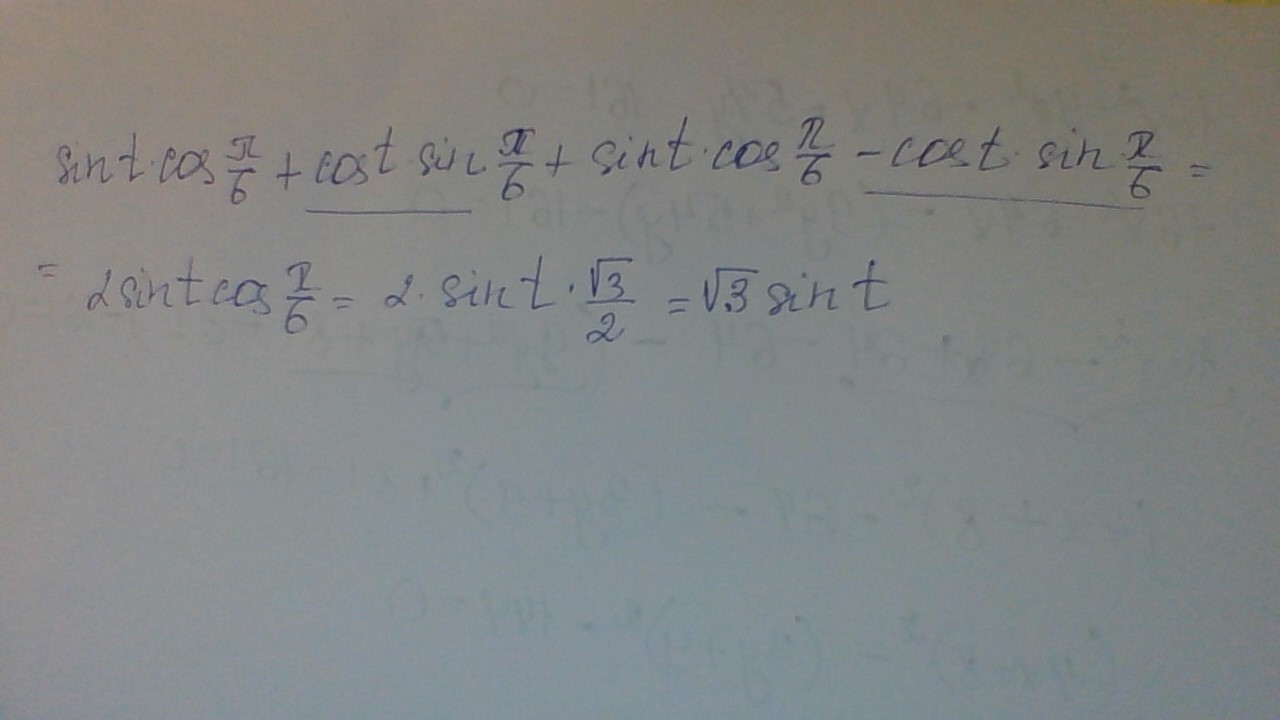 sin t · cos π/6 + cos t · sin π/6 + sin t · cos π/6 - cos t · sin π/6 =
= 2 sin t cos π/6 = 2 · sin t · √3/2 = √3 sin t